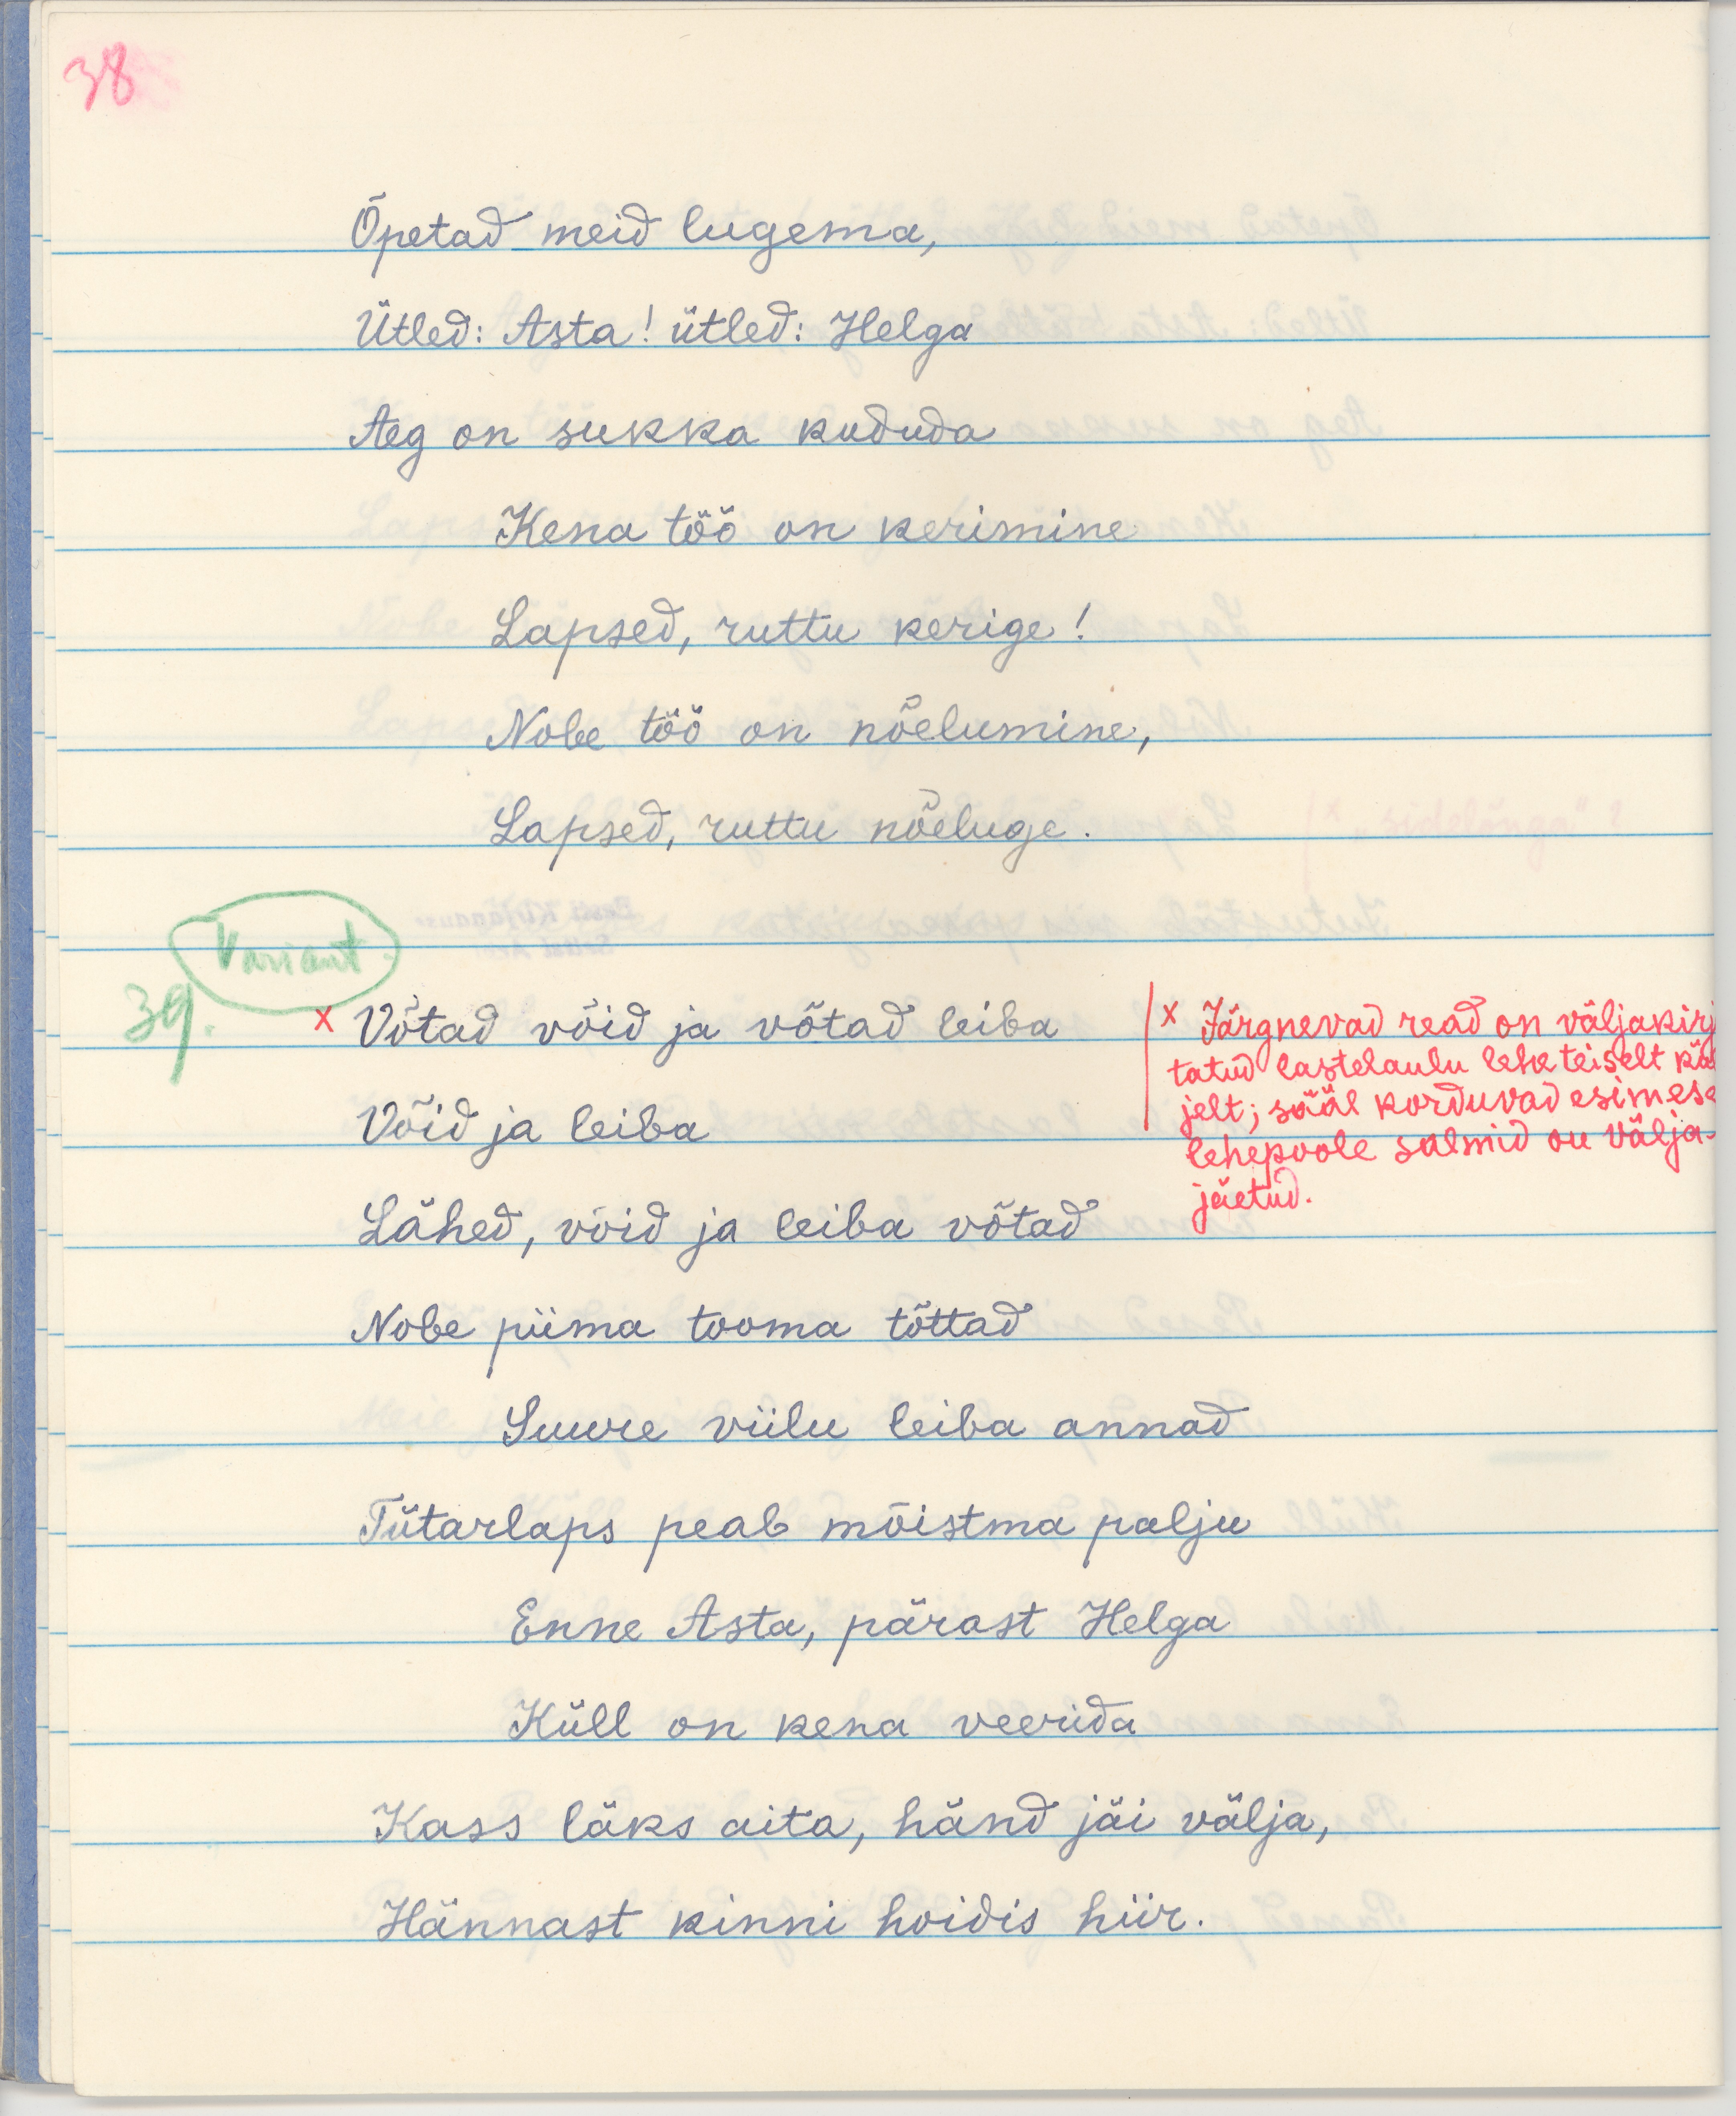 38
Õpetad meid lugema,
Ütled: Asta! ütled: Helga
Aeg on sukka kududa
Kena töö on kerimine
Lapsed, ruttu kerige!
Nobe töö on nõelumine,
Lapsed, ruttu nõeluge.
Variant.
39.
x Võtad võid ja võtad leiba
Võid ja leiba
Lähed, võid ja leiba võtad
Nobe piima tooma tõttad
Suure viilu leiba annad
Tütarlaps peab mõistma palju
Enne Asta, pärast Helga
Küll on kena veerida
Kass läks aita, händ jäi välja,
Hännast kinni hoidis hiir.
x Järgnevad read on väljakirj
tatud lastelaulu lehe teiselt kü
jelt; sääl korduvad esimese
lehepoole salmid on välja-
jäetud.